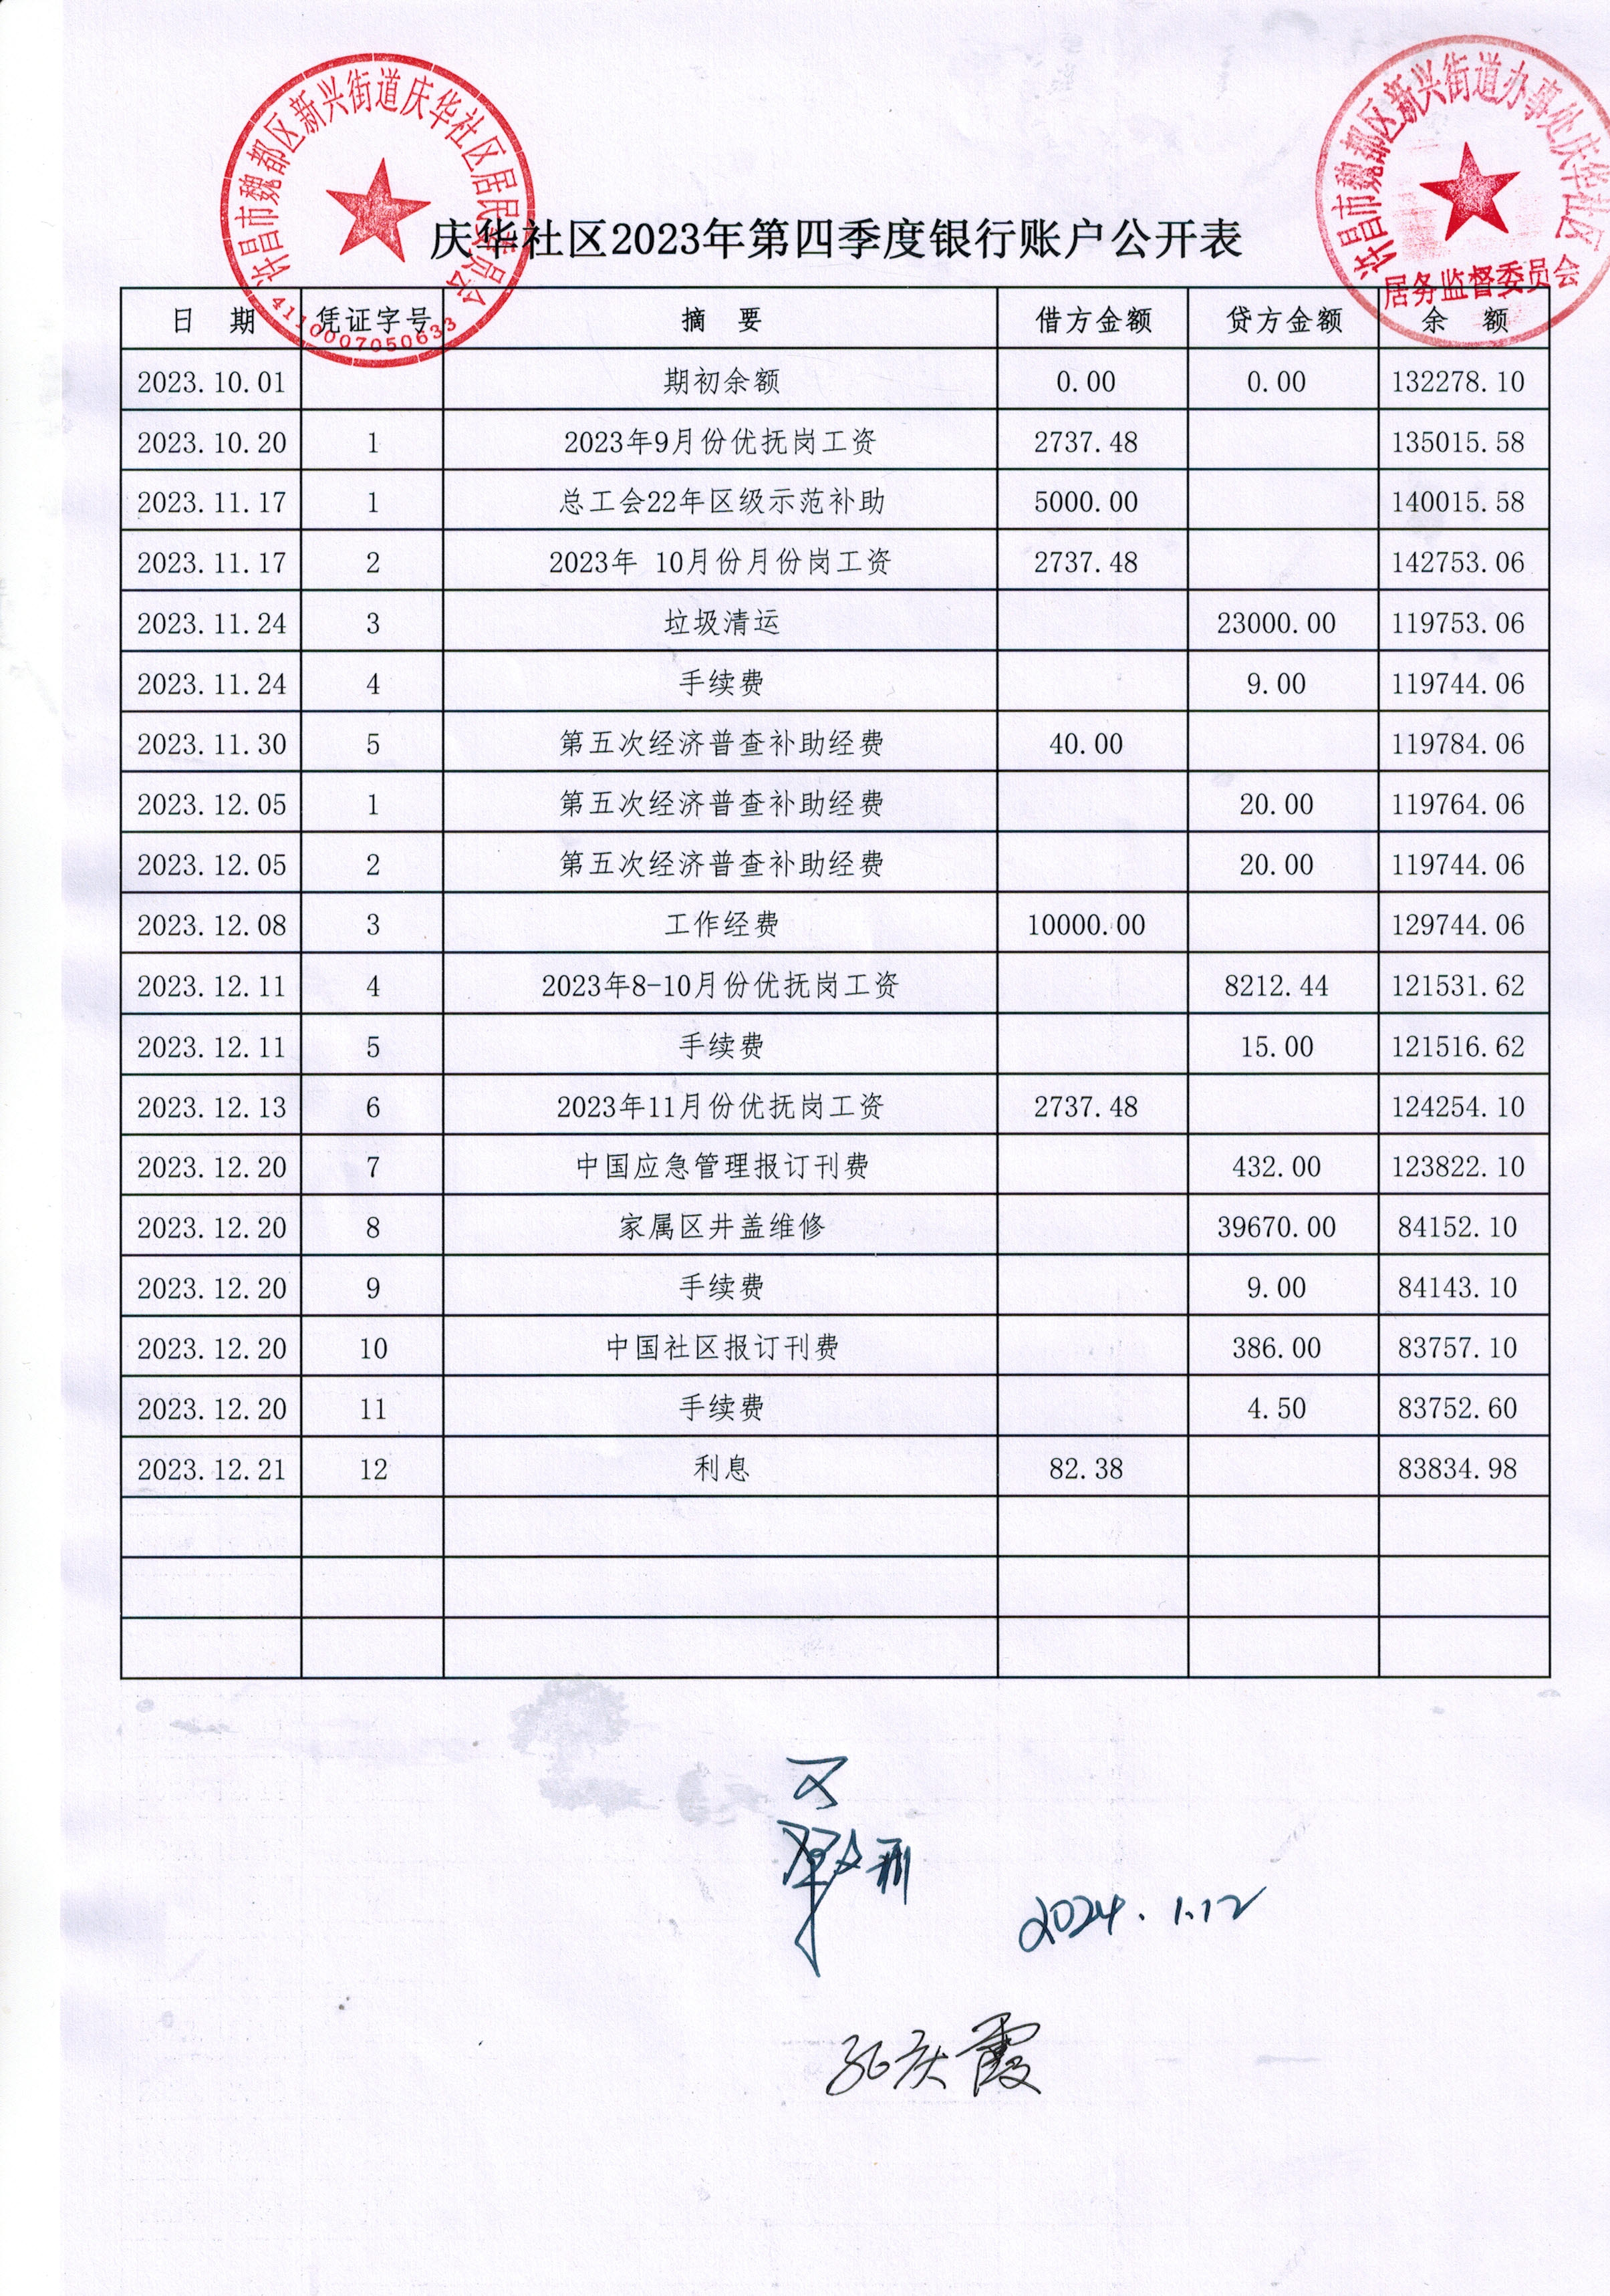 许昌市魏都区新兴街道庆华社区居民委员会
4110007050633
许昌市魏都区新兴街道办事处庆华社区
居务监督委员会
庆华社区2023年第四季度银行账户公开表
日 期 凭证字号 摘 要 借方金额 贷方金额 余 额
2023.10.01 期初余额 0.00 0.00 132278.10
2023.10.20 1 2023年9月份优抚岗工资 2737.48 135015.58
2023.11.17 1 总工会22年区级示范补助 5000.00 140015.58
2023.11.17 2 2023年 10月份月份岗工资 2737.48 142753.06
2023.11.24 3 垃圾清运 23000.00 119753.06
2023.11.24 4 手续费 9.00 119744.06
2023.11.30 5 第五次经济普查补助经费 40.00 119784.06
2023.12.05 1 第五次经济普查补助经费 20.00 119764.06
2023.12.05 2 第五次经济普查补助经费 20.00 119744.06
2023.12.08 3 工作经费 10000.00 129744.06
2023.12.11 4 2023年8-10月份优抚岗工资 8212.44 121531.62
2023.12.11 5 手续费 15.00 121516.62
2023.12.13 6 2023年11月份优抚岗工资 2737.48 124254.10
2023.12.20 7 中国应急管理报订刊费 432.00 123822.10
2023.12.20 8 家属区井盖维修 39670.00 84152.10
2023.12.20 9 手续费 9.00 84143.10
2023.12.20 10 中国社区报订刊费 386.00 83757.10
2023.12.20 11 手续费 4.50 83752.60
2023.12.21 12 利息 82.38 83834.98
2024.1.12
孙庆霞